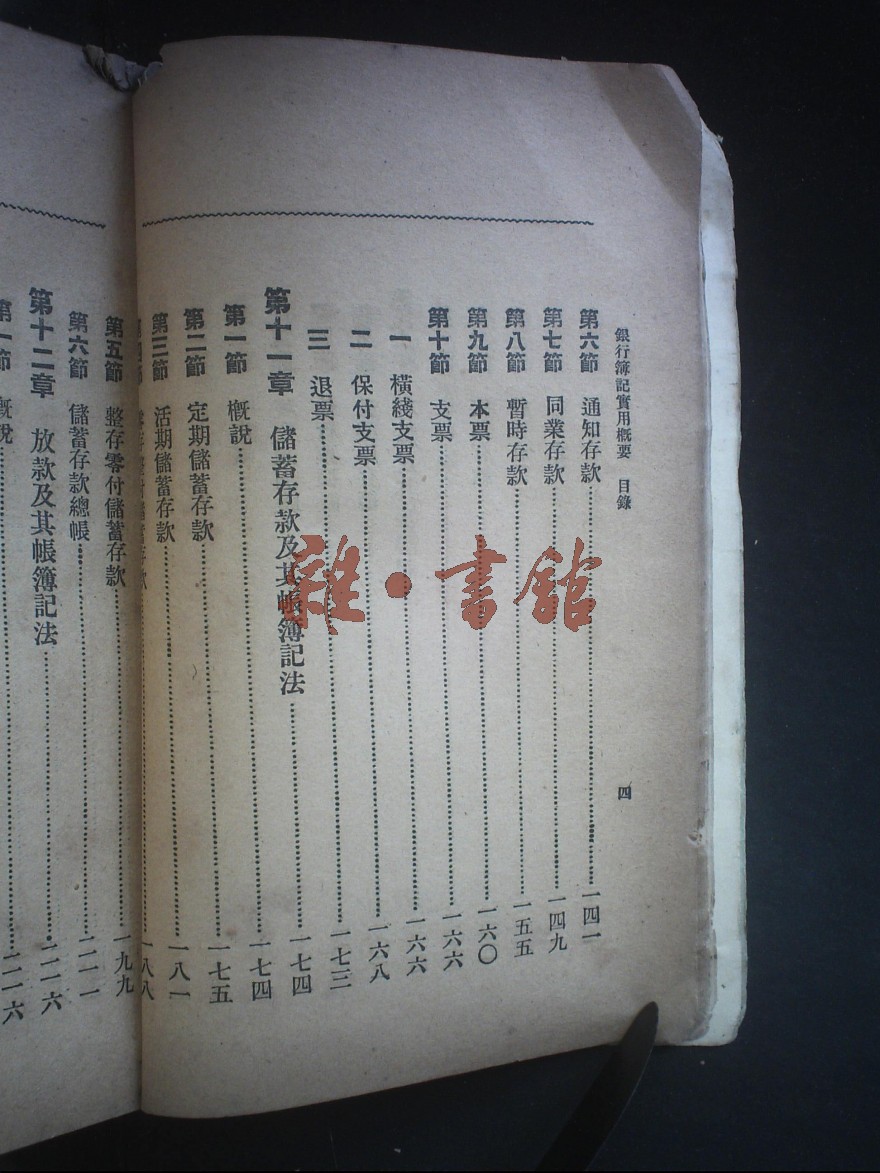 銀行簿記實用概要 目錄 四
第六節 通知存款 一四一
第七節 同業存款 一四九
第八節 暫時存款 一五五
第九節 本票 一六〇
第十節 支票 一六六
一 橫綫支票 一六六
二 保付支票 一六八
三 退票 一七三
第十一章 儲蓄存款及其帳簿記法 一七四
第一節 概說 一七四
第二節 定期儲蓄存款 一七五
第三節 活期儲蓄存款 一八一
儲蓄存款 一八八
第五節 整存零付儲蓄存款 一九九
第六節 儲蓄存款總帳 二一一
第十二章 放款及其帳簿記法 二一六
第一節 概說 二一六
雜·書館